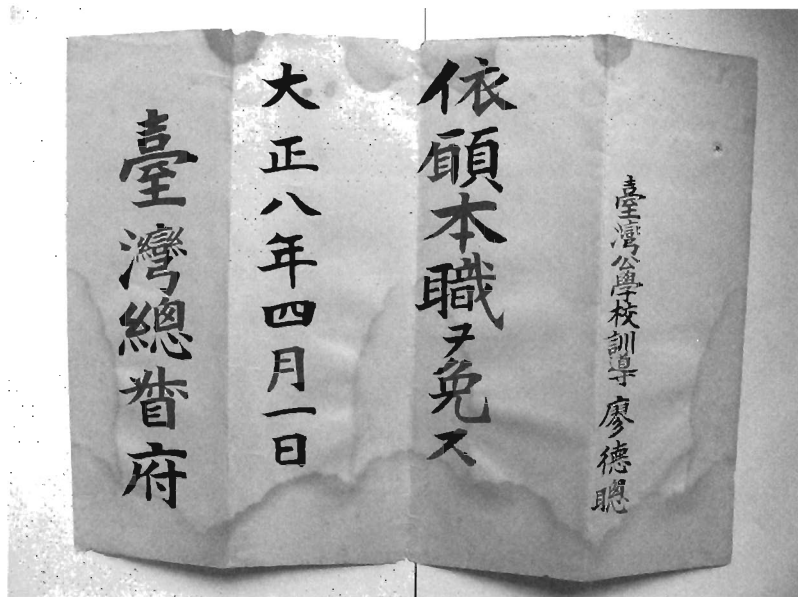 臺灣公學校訓導 廖德聰
依願本職ヲ免ス
大正八年四月一日
臺灣總督府